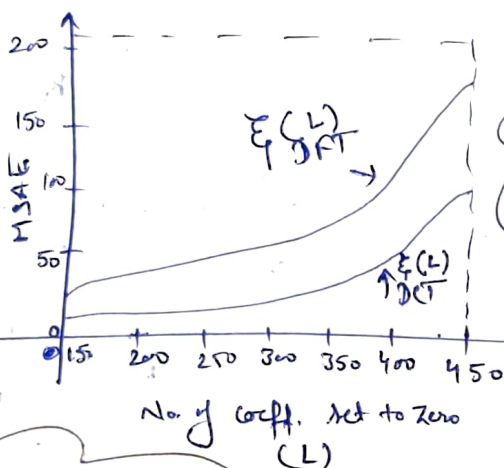 200
150
100
50
0
MSAE
ξ(L)
DFT
ξ(L)
DCT
0 150 200 250 300 350 400 450
No. of coeff. set to zero
(L)